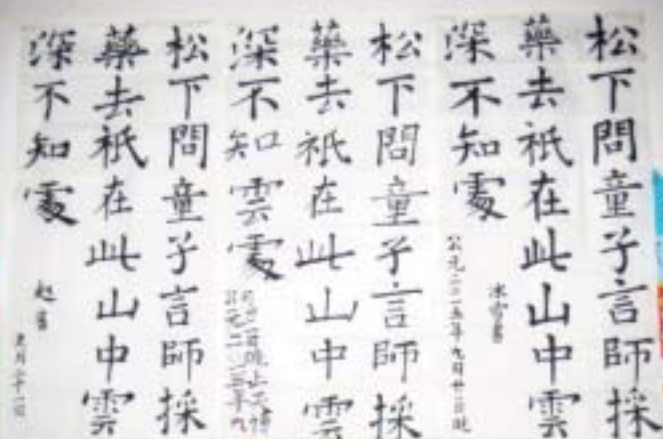 松下問童子言師採
藥去祇在此山中雲
深不知處
冰雪書
公元二〇一五年九月廿日晚
松下問童子言師採
藥去祇在此山中雲
深不知雲處
松下問童子言師採
藥去祇在此山中雲
深不知處